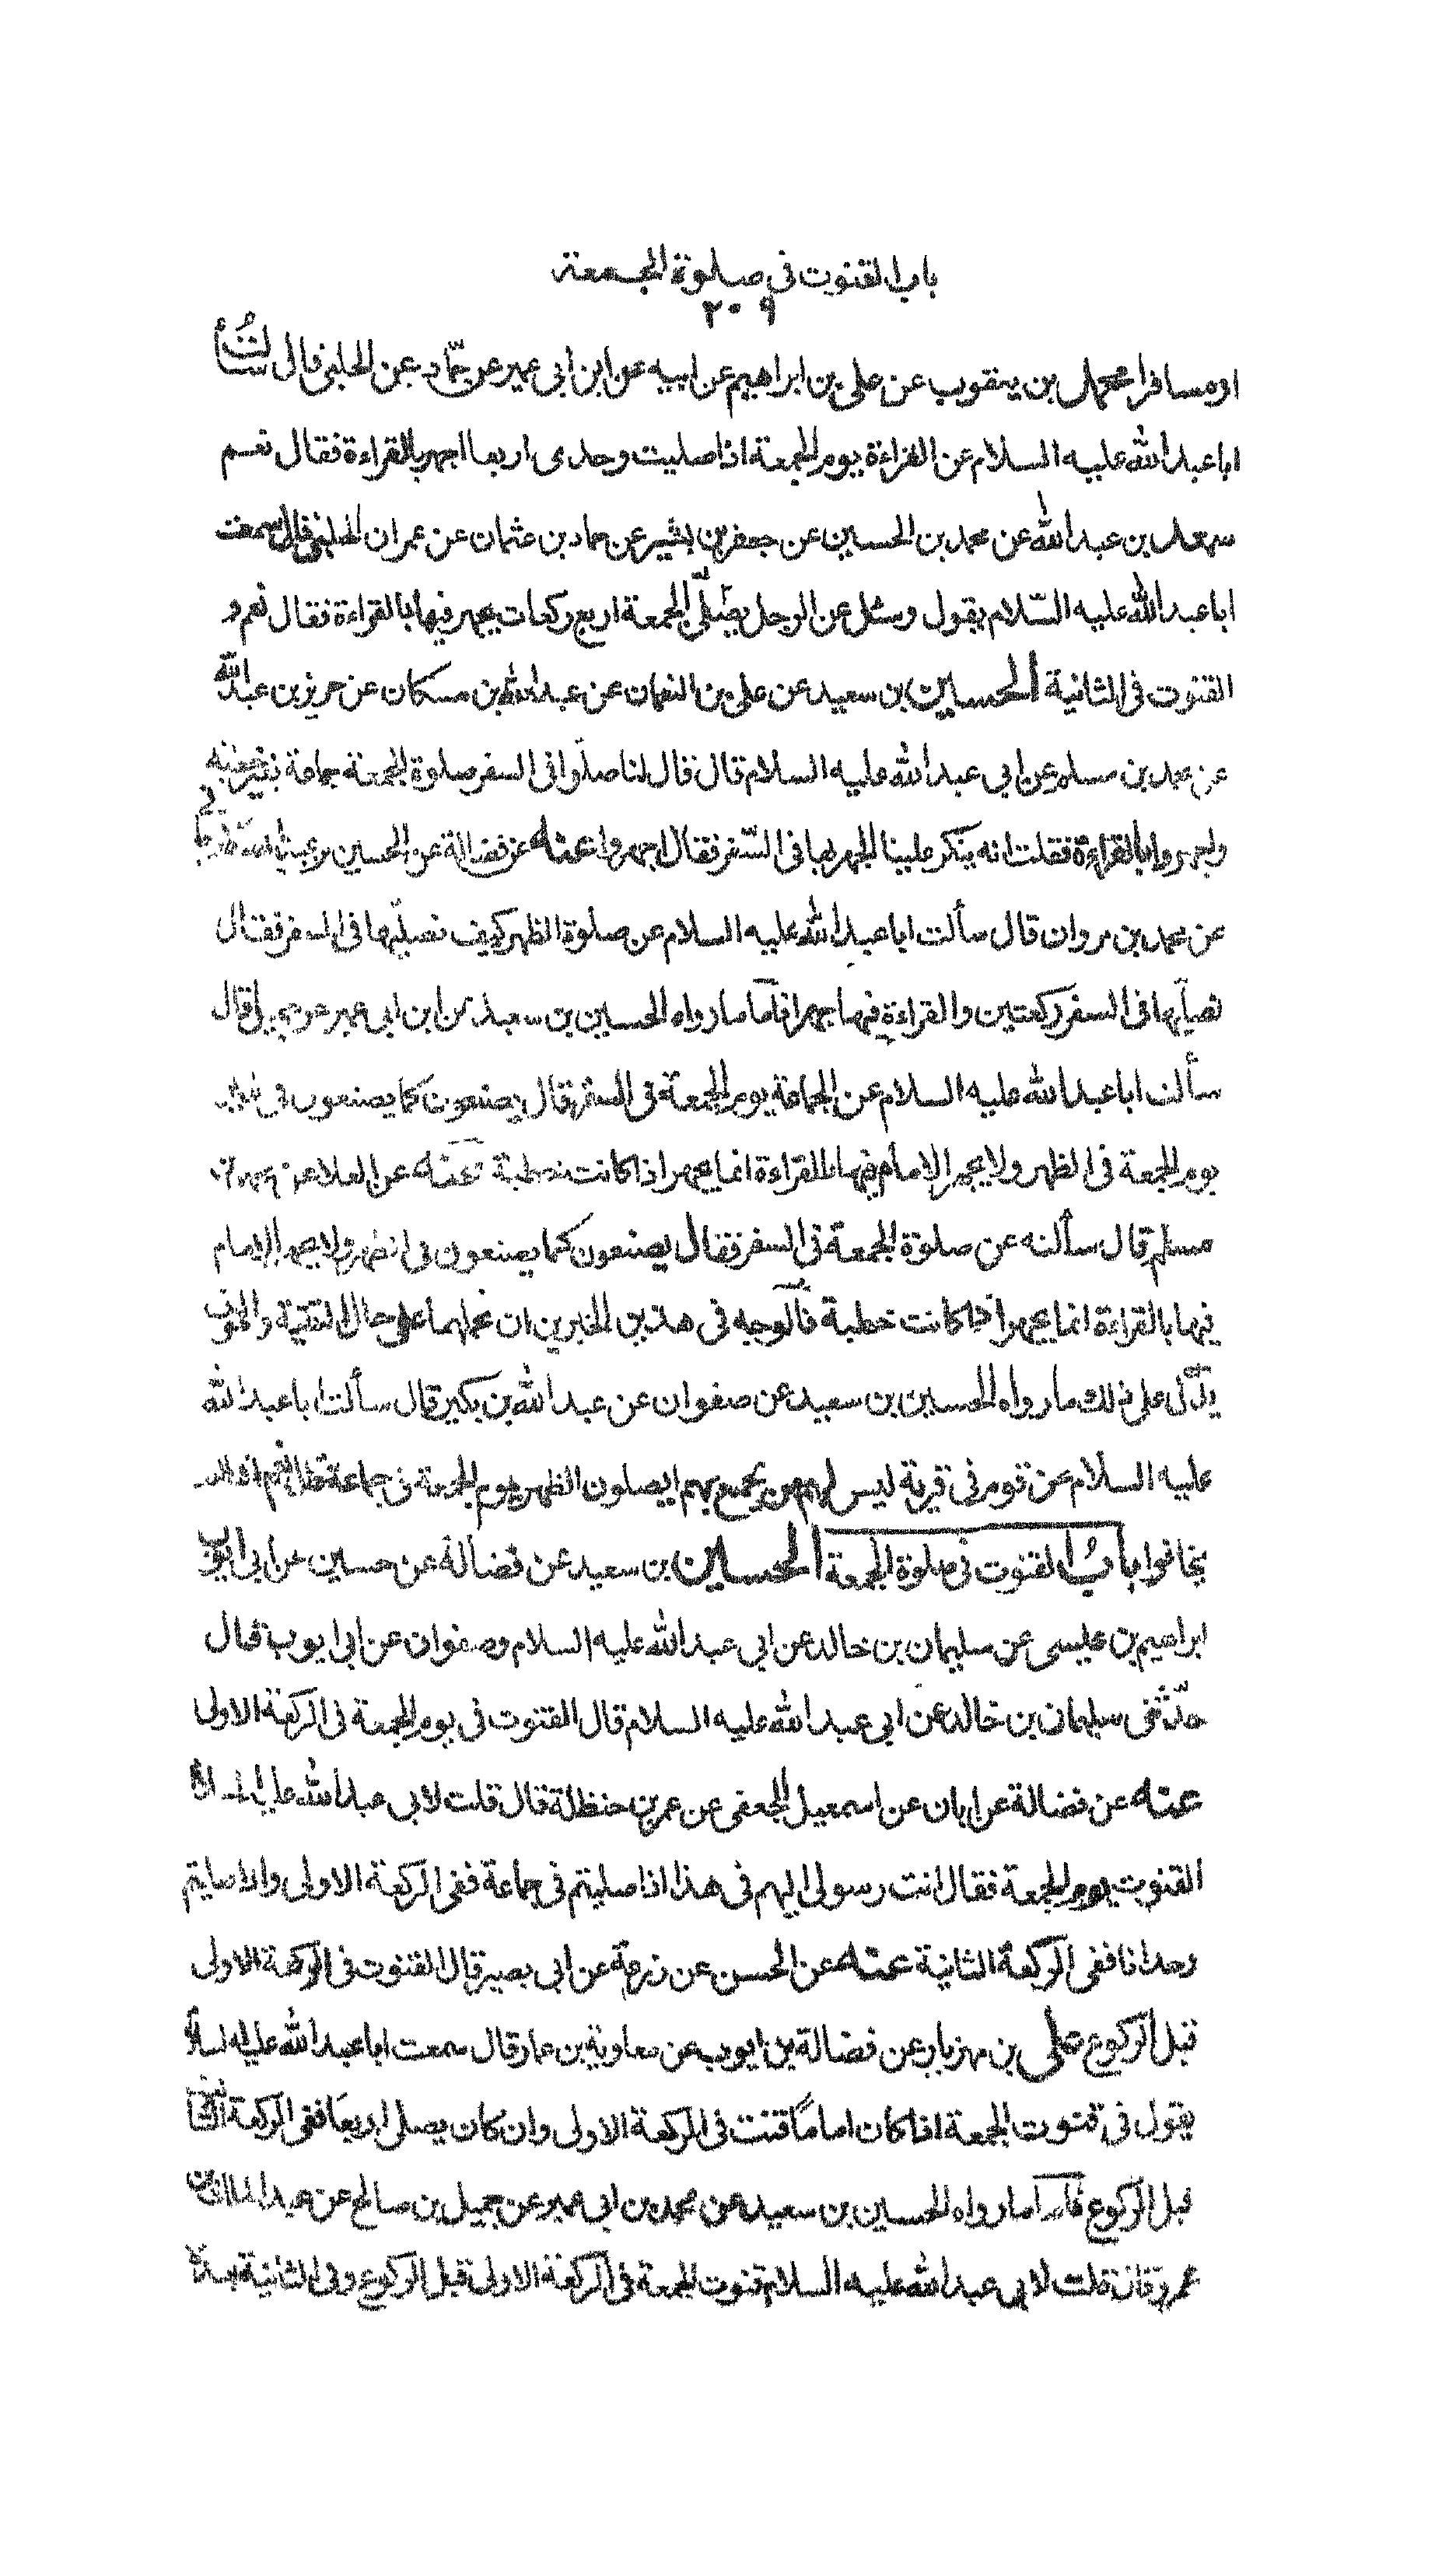 باب القنوت في صلوة الجمعة
٢٠٩
او مسافرا محمد بن يعقوب عن علي بن ابراهيم عن ابيه عن ابن ابي عمير عن حمّاد عن الحلبي قال سألت
ابا عبد الله عليه السلام عن القراءة يوم الجمعة اذا صليت وحدى اربعا اجهر بالقراءة فقال نعم
سعد بن عبد الله عن محمد بن الحسين عن جعفر بن بشير عن حماد بن عثمان عن عمران الحلبي قال سمعت
ابا عبد الله عليه السّلام يقول وسئل عن الرجل يصلّي الجمعة اربع ركعات يجهر فيها بالقراءة فقال نعم و
القنوت في الثانية الحسين بن سعيد عن علي بن النعمان عن عبد الله بن مسكان عن حريز بن عبد الله
عن محمد بن مسلم عن ابي عبد الله عليه السلام قال قال لنا صلّوا في السفر صلوة الجمعة جماعة بغير خطبة
واجهروا بالقراءة فقلت انه ينكر علينا الجهر بها في السّفر فقال اجهروا عنه عن فضالة عن الحسين بن عبد الله
عن محمد بن مروان قال سألت ابا عبد الله عليه السلام عن صلوة الظهر كيف نصلّيها في السفر فقال
تصلّيها في السفر ركعتين والقراءة فيها جهرا فأما ما رواه الحسين بن سعيد عن ابن ابي عمير عن جميل قال
سألت ابا عبد الله عليه السلام عن الجماعة يوم الجمعة في السفر قال يصنعون كما يصنعون في غير
يوم الجمعة في الظهر ولا يجهر الامام فيها بالقراءة انما يجهر اذا كانت خطبة عنه عن العلا عن محمد بن
مسلم قال سألته عن صلوة الجمعة في السفر فقال يصنعون كما يصنعون في الظهر ولا يجهر الامام
فيها بالقراءة انما يجهر اذا كانت خطبة فالوجه في هذين الخبرين ان نحملهما على حال التقية والخوف
يدّل على ذلك ما رواه الحسين بن سعيد عن صفوان عن عبد الله بن بكير قال سألت ابا عبد الله
عليه السلام عن قوم في قرية ليس لهم من يجمع بهم ايصلون الظهر يوم الجمعة في جماعة قال نعم اذا لم
يخافوا باب القنوت في صلوة الجمعة الحسين بن سعيد عن فضالة عن حسين عن ابي ايوب
ابراهيم بن عيسى عن سليمان بن خالد عن ابي عبد الله عليه السلام وصفوان عن ابي ايوب قال
حدّثني سليمان بن خالد عن ابي عبد الله عليه السلام قال القنوت في يوم الجمعة في الركعة الاولى
عنه عن فضالة عن ابان عن اسمعيل الجعفي عن عمر بن حنظلة قال قلت لابي عبد الله عليه السلام
القنوت يوم الجمعة فقال انت رسولي اليهم في هذا اذا صليتم في جماعة ففي الركعة الاولى واذا صليتم
وحدانا ففي الركعة الثانية عنه عن الحسن عن زرعة عن ابي بصير قال القنوت في الركعة الاولى
قبل الركوع علي بن مهزيار عن فضالة بن ايوب عن معاوية بن عمار قال سمعت ابا عبد الله عليه السلام
يقول في قنوت الجمعة اذا كان اماما قنت في الركعة الاولى وان كان يصلي اربعا ففي الركعة الثانية
قبل الركوع فأما ما رواه الحسين بن سعيد عن محمد بن ابي عمير عن جميل بن صالح عن عبد الملك بن
عمرو قال قلت لابي عبد الله عليه السلام قنوت الجمعة في الركعة الاولى قبل الركوع وفي الثانية بعد